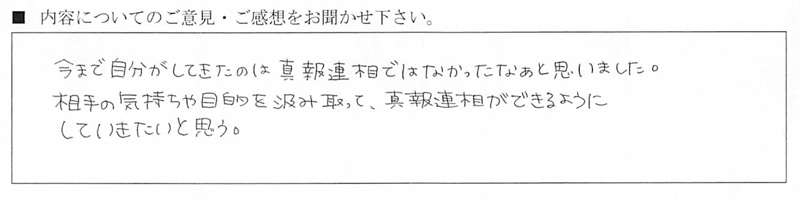 ■ 内容についてのご意見・ご感想をお聞かせ下さい。
今まで自分がしてきたのは真報連相ではなかったなぁと思いました。
相手の気持ちや目的を汲み取って、真報連相ができるように
していきたいと思う。